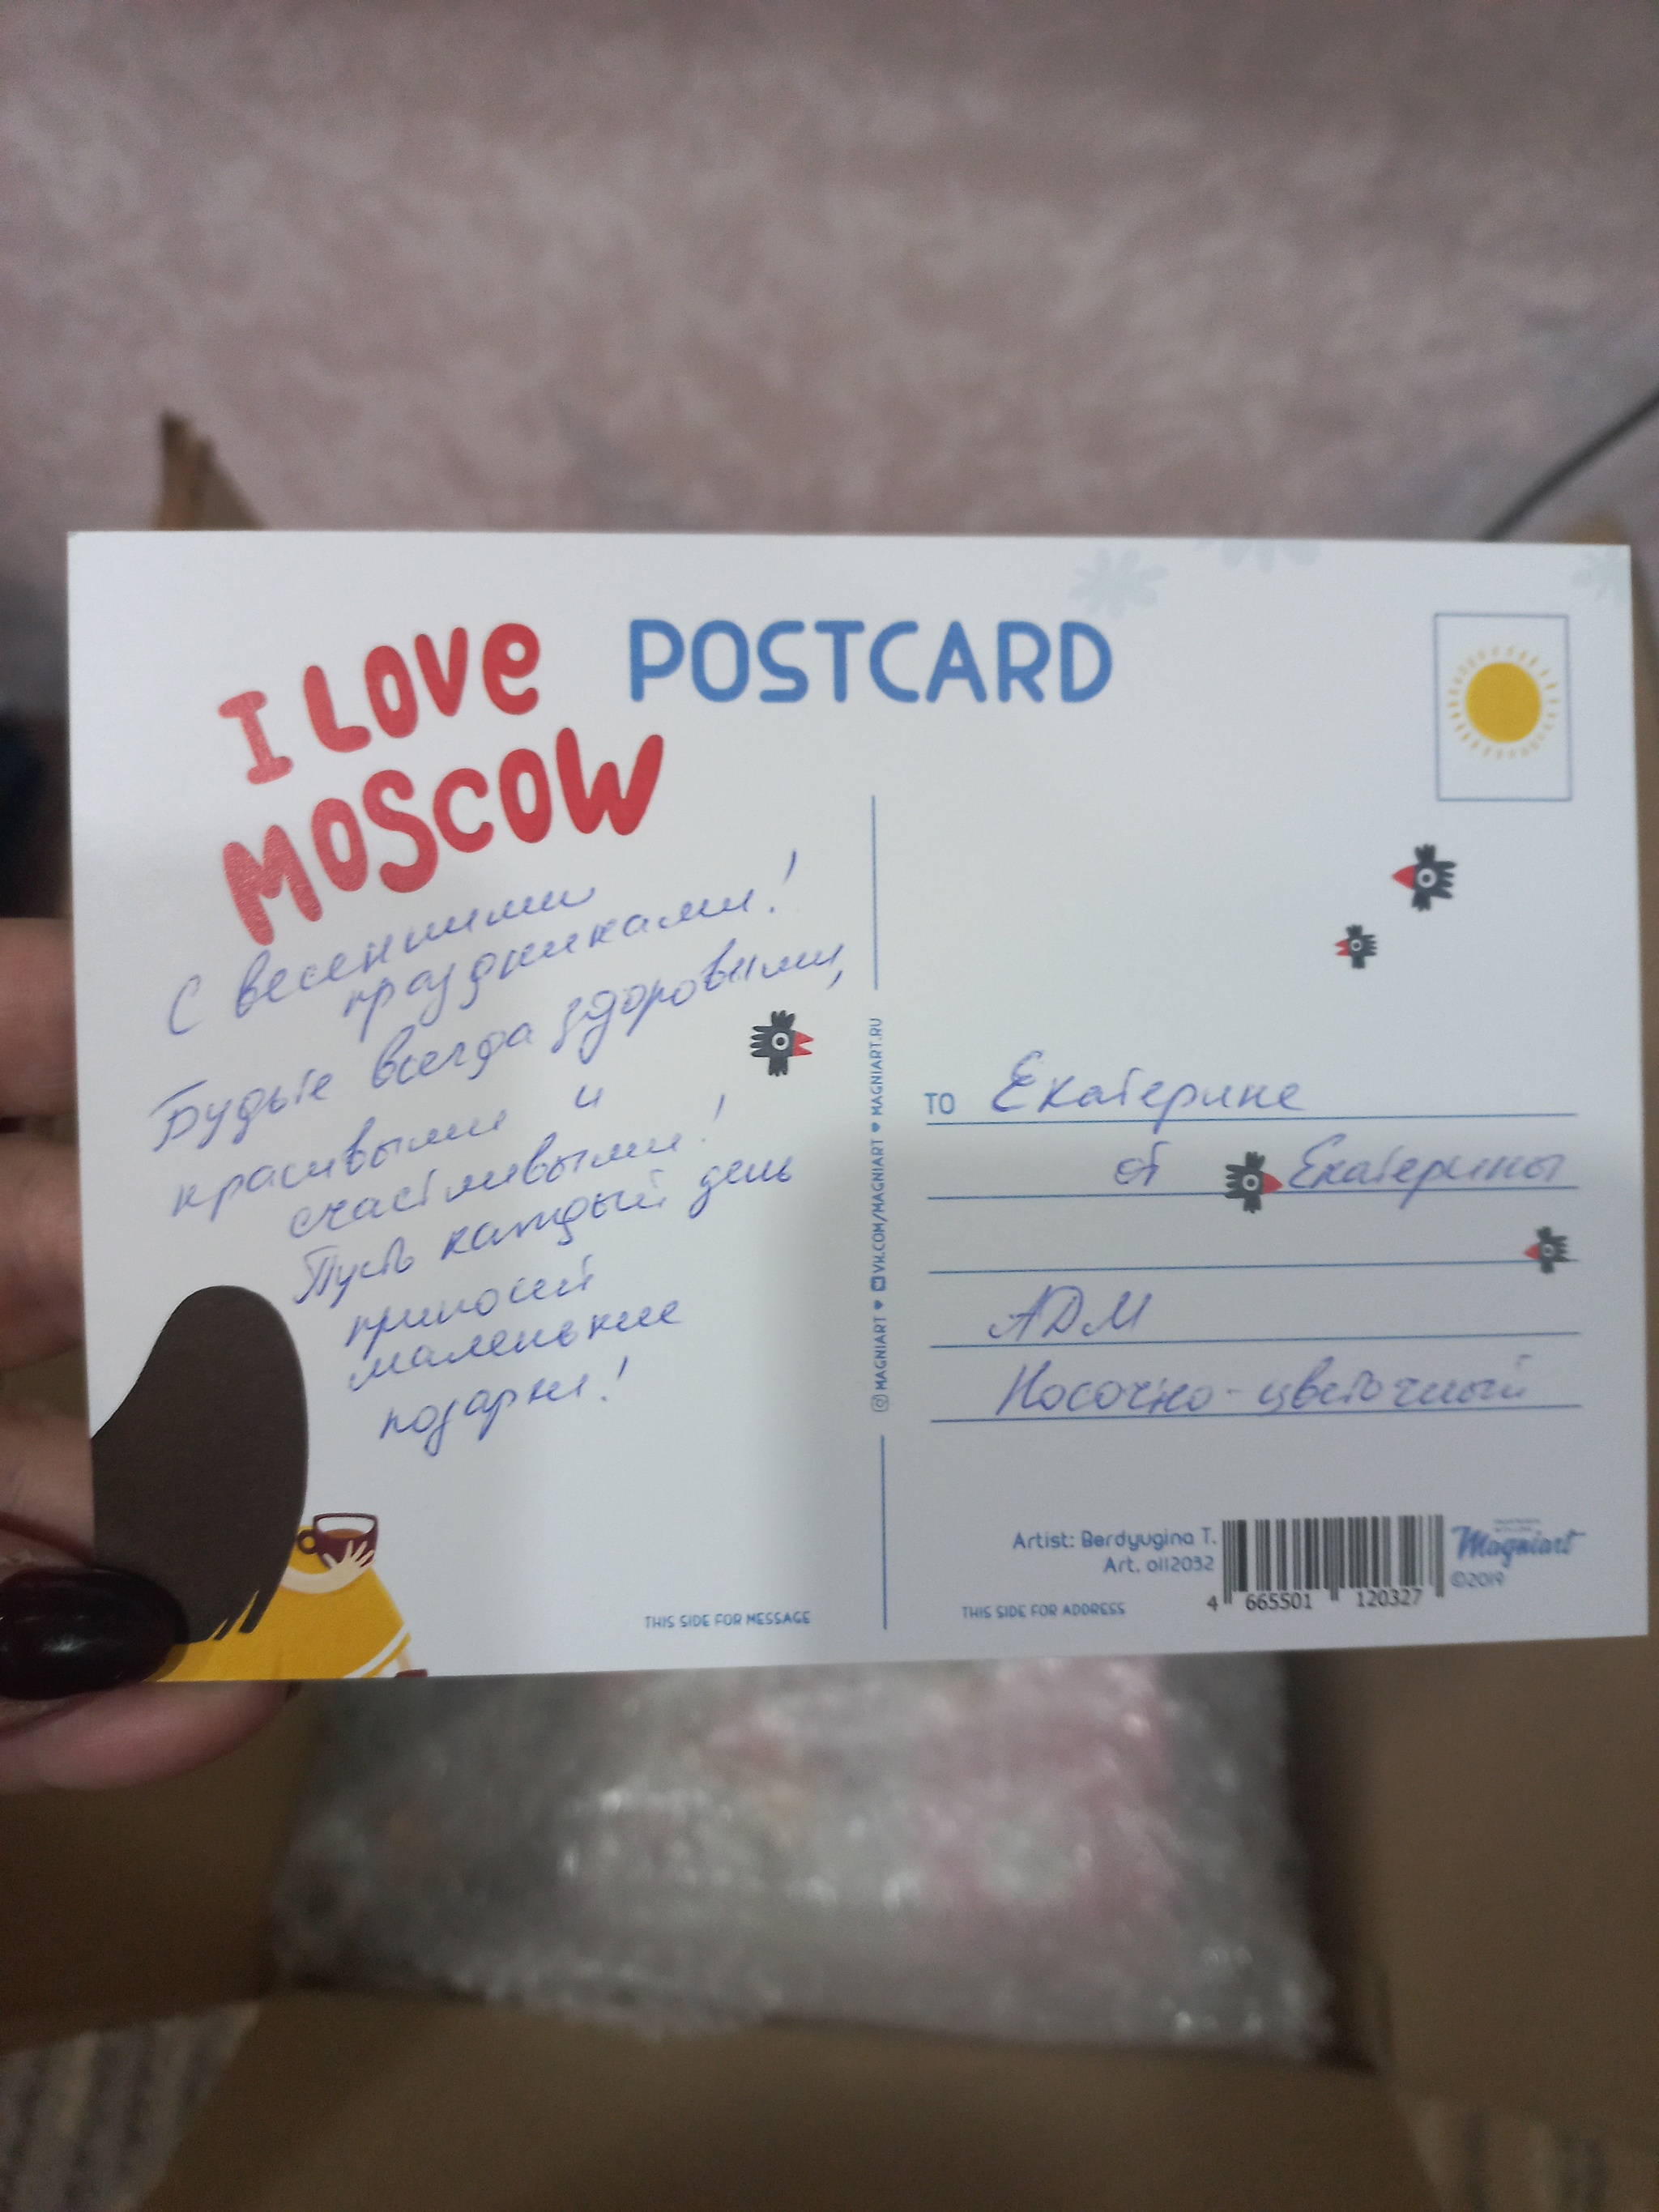 I LOVE
MOSCOW
POSTCARD
С весенними
праздниками!
Будьте всегда здоровыми,
красивыми и
счастливыми!
Пусть каждый день
приносит
маленькие
подарки!
THIS SIDE FOR MESSAGE
MAGNIART ♥ VK.COM/MAGNIART ♥ MAGNIART.RU
TO Екатерине
от Екатерины
АДМ
Носочно-цветочный
Artist: Berdyugina T.
Art. oll2032
THIS SIDE FOR ADDRESS
4 665501 120327
Magniart
©2019